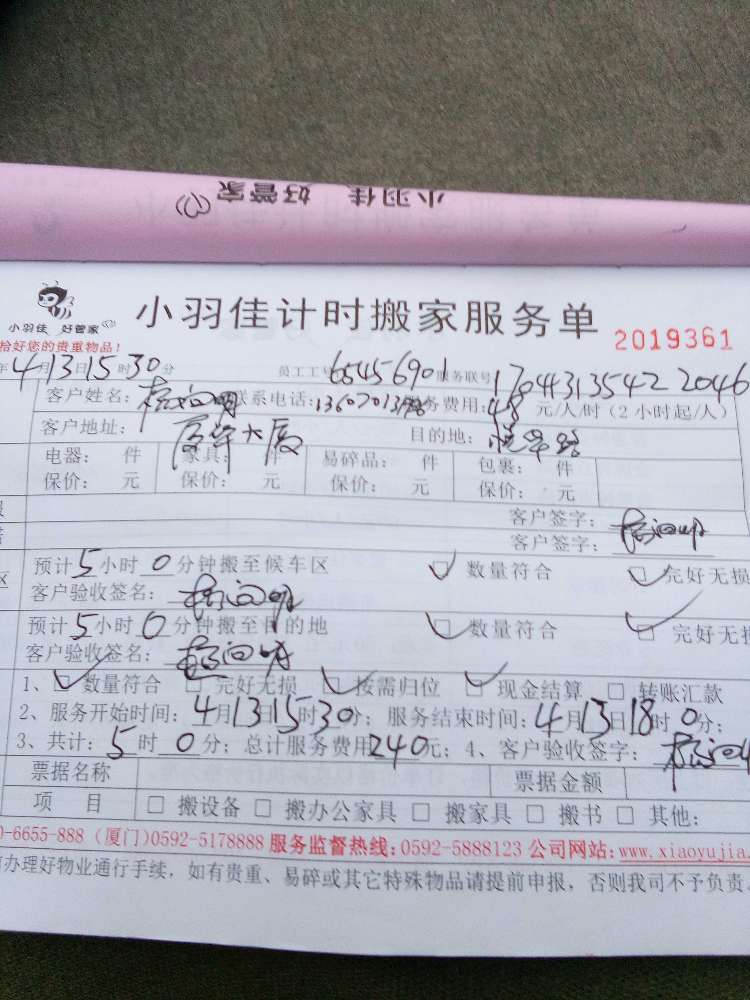 小羽佳 好管家
小羽佳 好管家
小羽佳计时搬家服务单
2019361
恰好您的贵重物品！
年4月13日15时30分 员工工号 65456901 服务联号 170413135422 2046
客户姓名： 联系电话：服务费用：48 元/人/时（2小时起/人）
客户地址： 大厦 目的地：
电器： 件 家具： 件 易碎品： 件 包裹： 件
保价： 元 保价： 元 保价： 元 保价： 元
客户签字：
客户签字：
预计5小时0分钟搬至候车区 ☑ 数量符合 ☑ 完好无损
客户验收签名：
预计5小时0分钟搬至目的地 ☑ 数量符合 ☑ 完好无损
客户验收签名：
1、☑ 数量符合 □ 完好无损 ☑ 按需归位 ☑ 现金结算 □ 转账汇款
2、服务开始时间：4月13日15时30分；服务结束时间：4月13日18时0分；
3、共计：5时0分；总计服务费用240元；4、客户验收签字：
票据名称 票据金额
项 目 □ 搬设备 □ 搬办公家具 □ 搬家具 □ 搬书 □ 其他：
0-6655-888（厦门）0592-5178888 服务监督热线：0592-5888123 公司网站：www.xiaoyujia.
办理好物业通行手续，如有贵重、易碎或其它特殊物品请提前申报，否则我司不予负责。